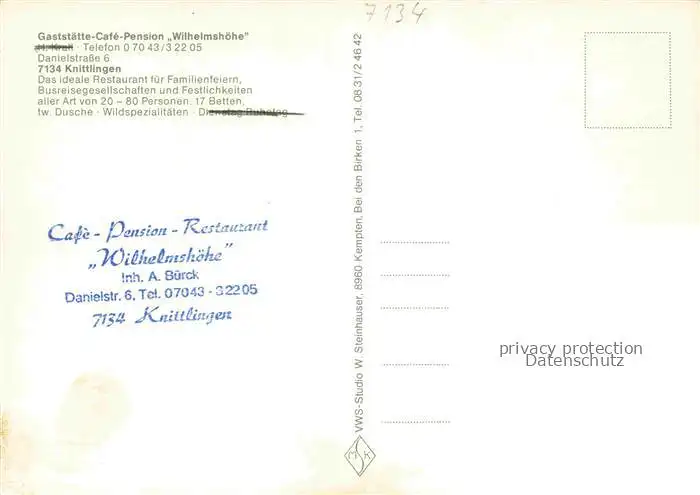 7134
Gaststätte-Café-Pension „Wilhelmshöhe"
Telefon 0 70 43/3 22 05
Danielstraße 6
7134 Knittlingen
Das ideale Restaurant für Familienfeiern,
Busreisegesellschaften und Festlichkeiten
aller Art von 20 – 80 Personen. 17 Betten,
tw. Dusche · Wildspezialitäten · Dienstag Ruhetag
VWS-Studio W. Steinhauser, 8960 Kempten, Bei den Birken 1, Tel. 08 31/2 46 42
Cafè - Pension - Restaurant
„Wilhelmshöhe"
Inh. A. Bürck
Danielstr. 6, Tel. 07043 - 32205
7134 Knittlingen
M K
privacy protection
Datenschutz